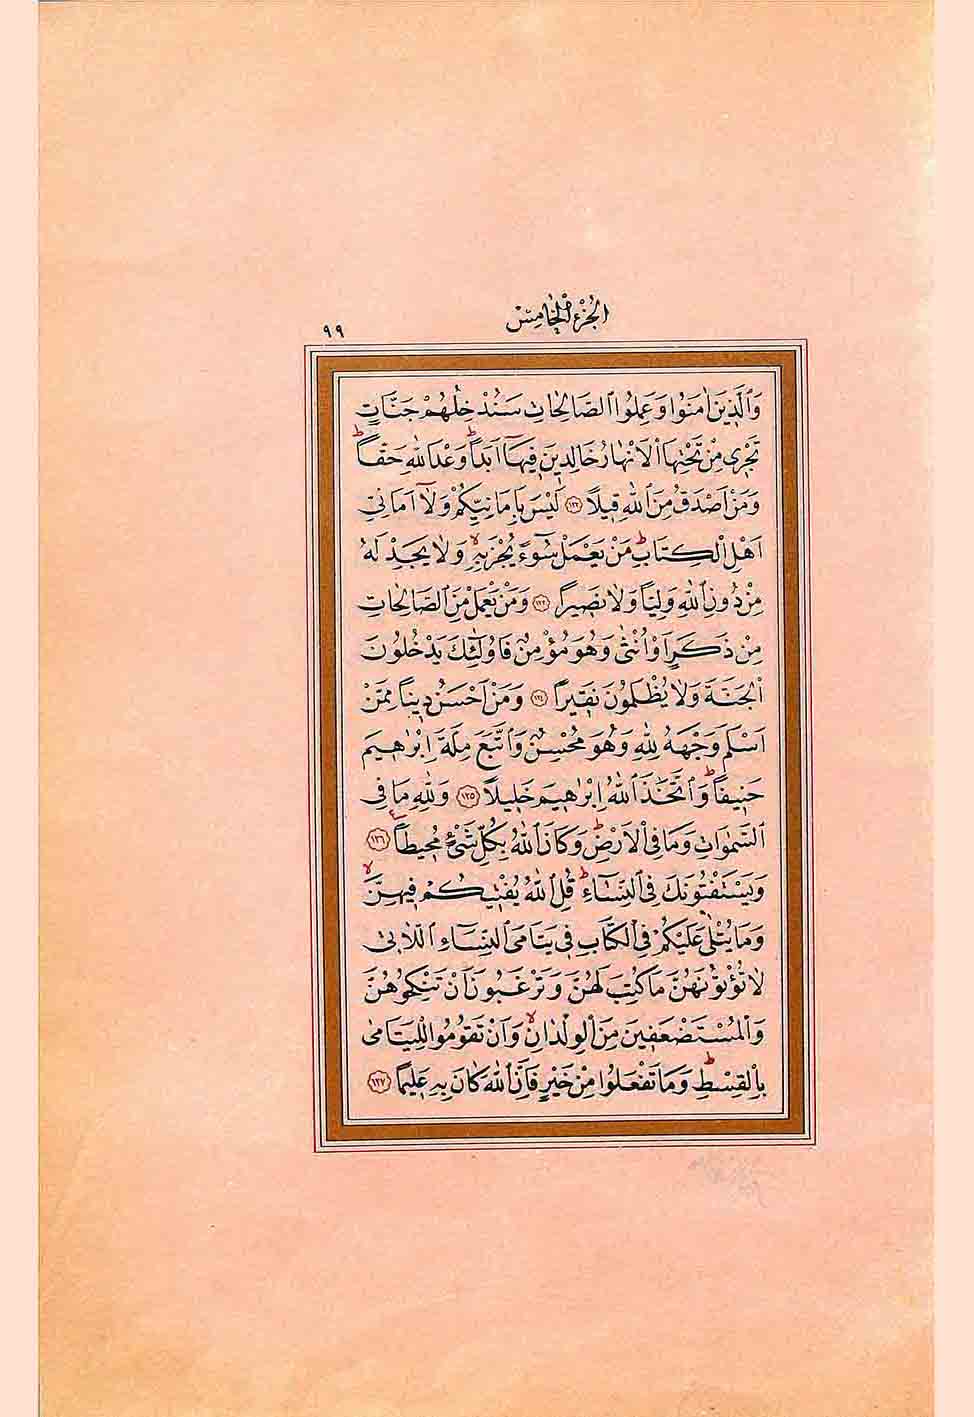 الجزء الخامس
٩٩
وَالَّذٖينَ اٰمَنُوا وَعَمِلُوا الصَّالِحَاتِ سَنُدْخِلُهُمْ جَنَّاتٍ
تَجْرٖى مِنْ تَحْتِهَا الْاَنْهَارُ خَالِدٖينَ فٖيهَٓا اَبَداًؕ وَعْدَ اللّٰهِ حَقاًّؕ
وَمَنْ اَصْدَقُ مِنَ اللّٰهِ قٖيلاً ﴿١٢٢﴾ لَيْسَ بِاَمَانِيِّكُمْ وَلَٓا اَمَانِىِّ
اَهْلِ الْكِتَابِؕ مَنْ يَعْمَلْ سُٓوءاً يُجْزَ بِهٖۙ وَلَا يَجِدْ لَهُ
مِنْ دُونِ اللّٰهِ وَلِياًّ وَلَا نَصٖيراً ﴿١٢٣﴾ وَمَنْ يَعْمَلْ مِنَ الصَّالِحَاتِ
مِنْ ذَكَرٍ اَوْ اُنْثٰى وَهُوَ مُؤْمِنٌ فَاُو۬لٰٓئِكَ يَدْخُلُونَ
الْجَنَّةَ وَلَا يُظْلَمُونَ نَقٖيراً ﴿١٢٤﴾ وَمَنْ اَحْسَنُ دٖيناً مِمَّنْ
اَسْلَمَ وَجْهَهُ لِلّٰهِ وَهُوَ مُحْسِنٌ وَاتَّبَعَ مِلَّةَ اِبْرٰهٖيمَ
حَنٖيفاًؕ وَاتَّخَذَ اللّٰهُ اِبْرٰهٖيمَ خَلٖيلاً ﴿١٢٥﴾ وَلِلّٰهِ مَا فِى
السَّمٰوَاتِ وَمَا فِى الْاَرْضِؕ وَكَانَ اللّٰهُ بِكُلِّ شَىْءٍ مُحٖيطاً ﴿١٢٦﴾
وَيَسْتَفْتُونَكَ فِى النِّسَٓاءِؕ قُلِ اللّٰهُ يُفْتٖيكُمْ فٖيهِنَّۙ
وَمَا يُتْلٰى عَلَيْكُمْ فِى الْكِتَابِ فٖى يَتَامَى النِّسَٓاءِ الّٰلَاتٖى
لَا تُؤْتُونَهُنَّ مَا كُتِبَ لَهُنَّ وَتَرْغَبُونَ اَنْ تَنْكِحُوهُنَّ
وَالْمُسْتَضْعَفٖينَ مِنَ الْوِلْدَانِۙ وَاَنْ تَقُومُوا لِلْيَتَامٰى
بِالْقِسْطِؕ وَمَا تَفْعَلُوا مِنْ خَيْرٍ فَاِنَّ اللّٰهَ كَانَ بِهٖ عَلٖيماً ﴿١٢٧﴾